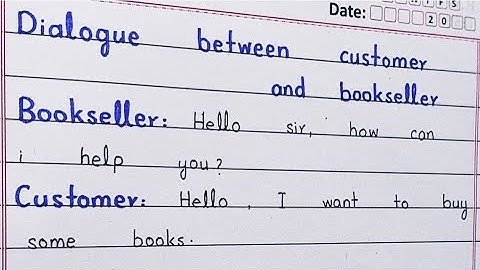 Date:
20
Dialogue between customer
and bookseller
Bookseller: Hello sir, how can
i help you?
Customer: Hello, I want to buy
some books.